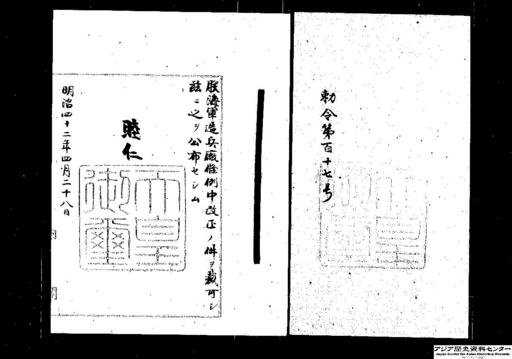 勅令第百十七号
朕海軍造兵廠條例中改正ノ件ヲ裁可シ
茲ニ之ヲ公布セシム
睦仁
天皇御璽
明治四十二年四月二十八日
内閣
アジア歴史資料センター
Japan Center for Asian Historical Records